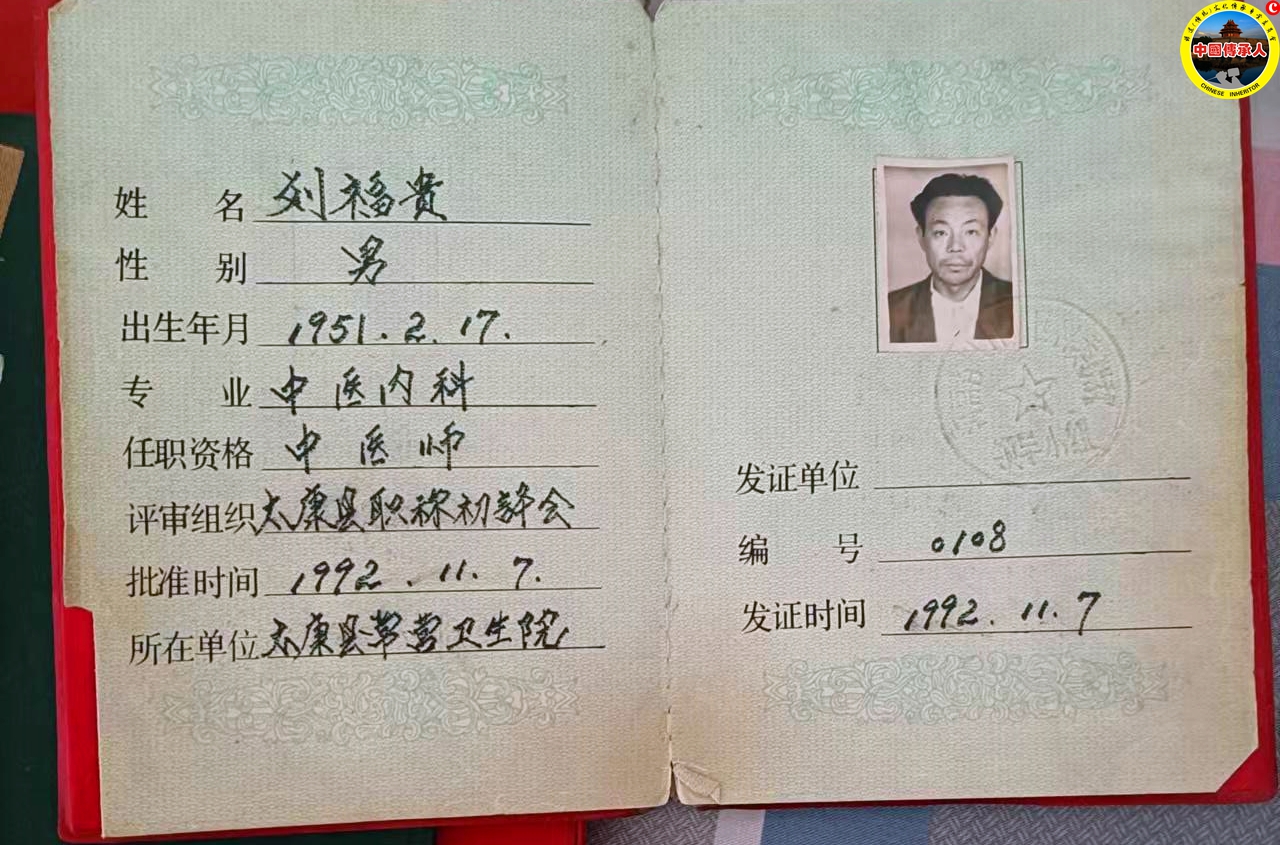 姓名 刘福贵
性别 男
出生年月 1951.2.17.
专业 中医内科
任职资格 中医师
评审组织 太康县职称初评会
批准时间 1992.11.7.
所在单位 太康县常营卫生院
发证单位
编号 0108
发证时间 1992.11.7
中國傳承人
CHINESE INHERITOR
C